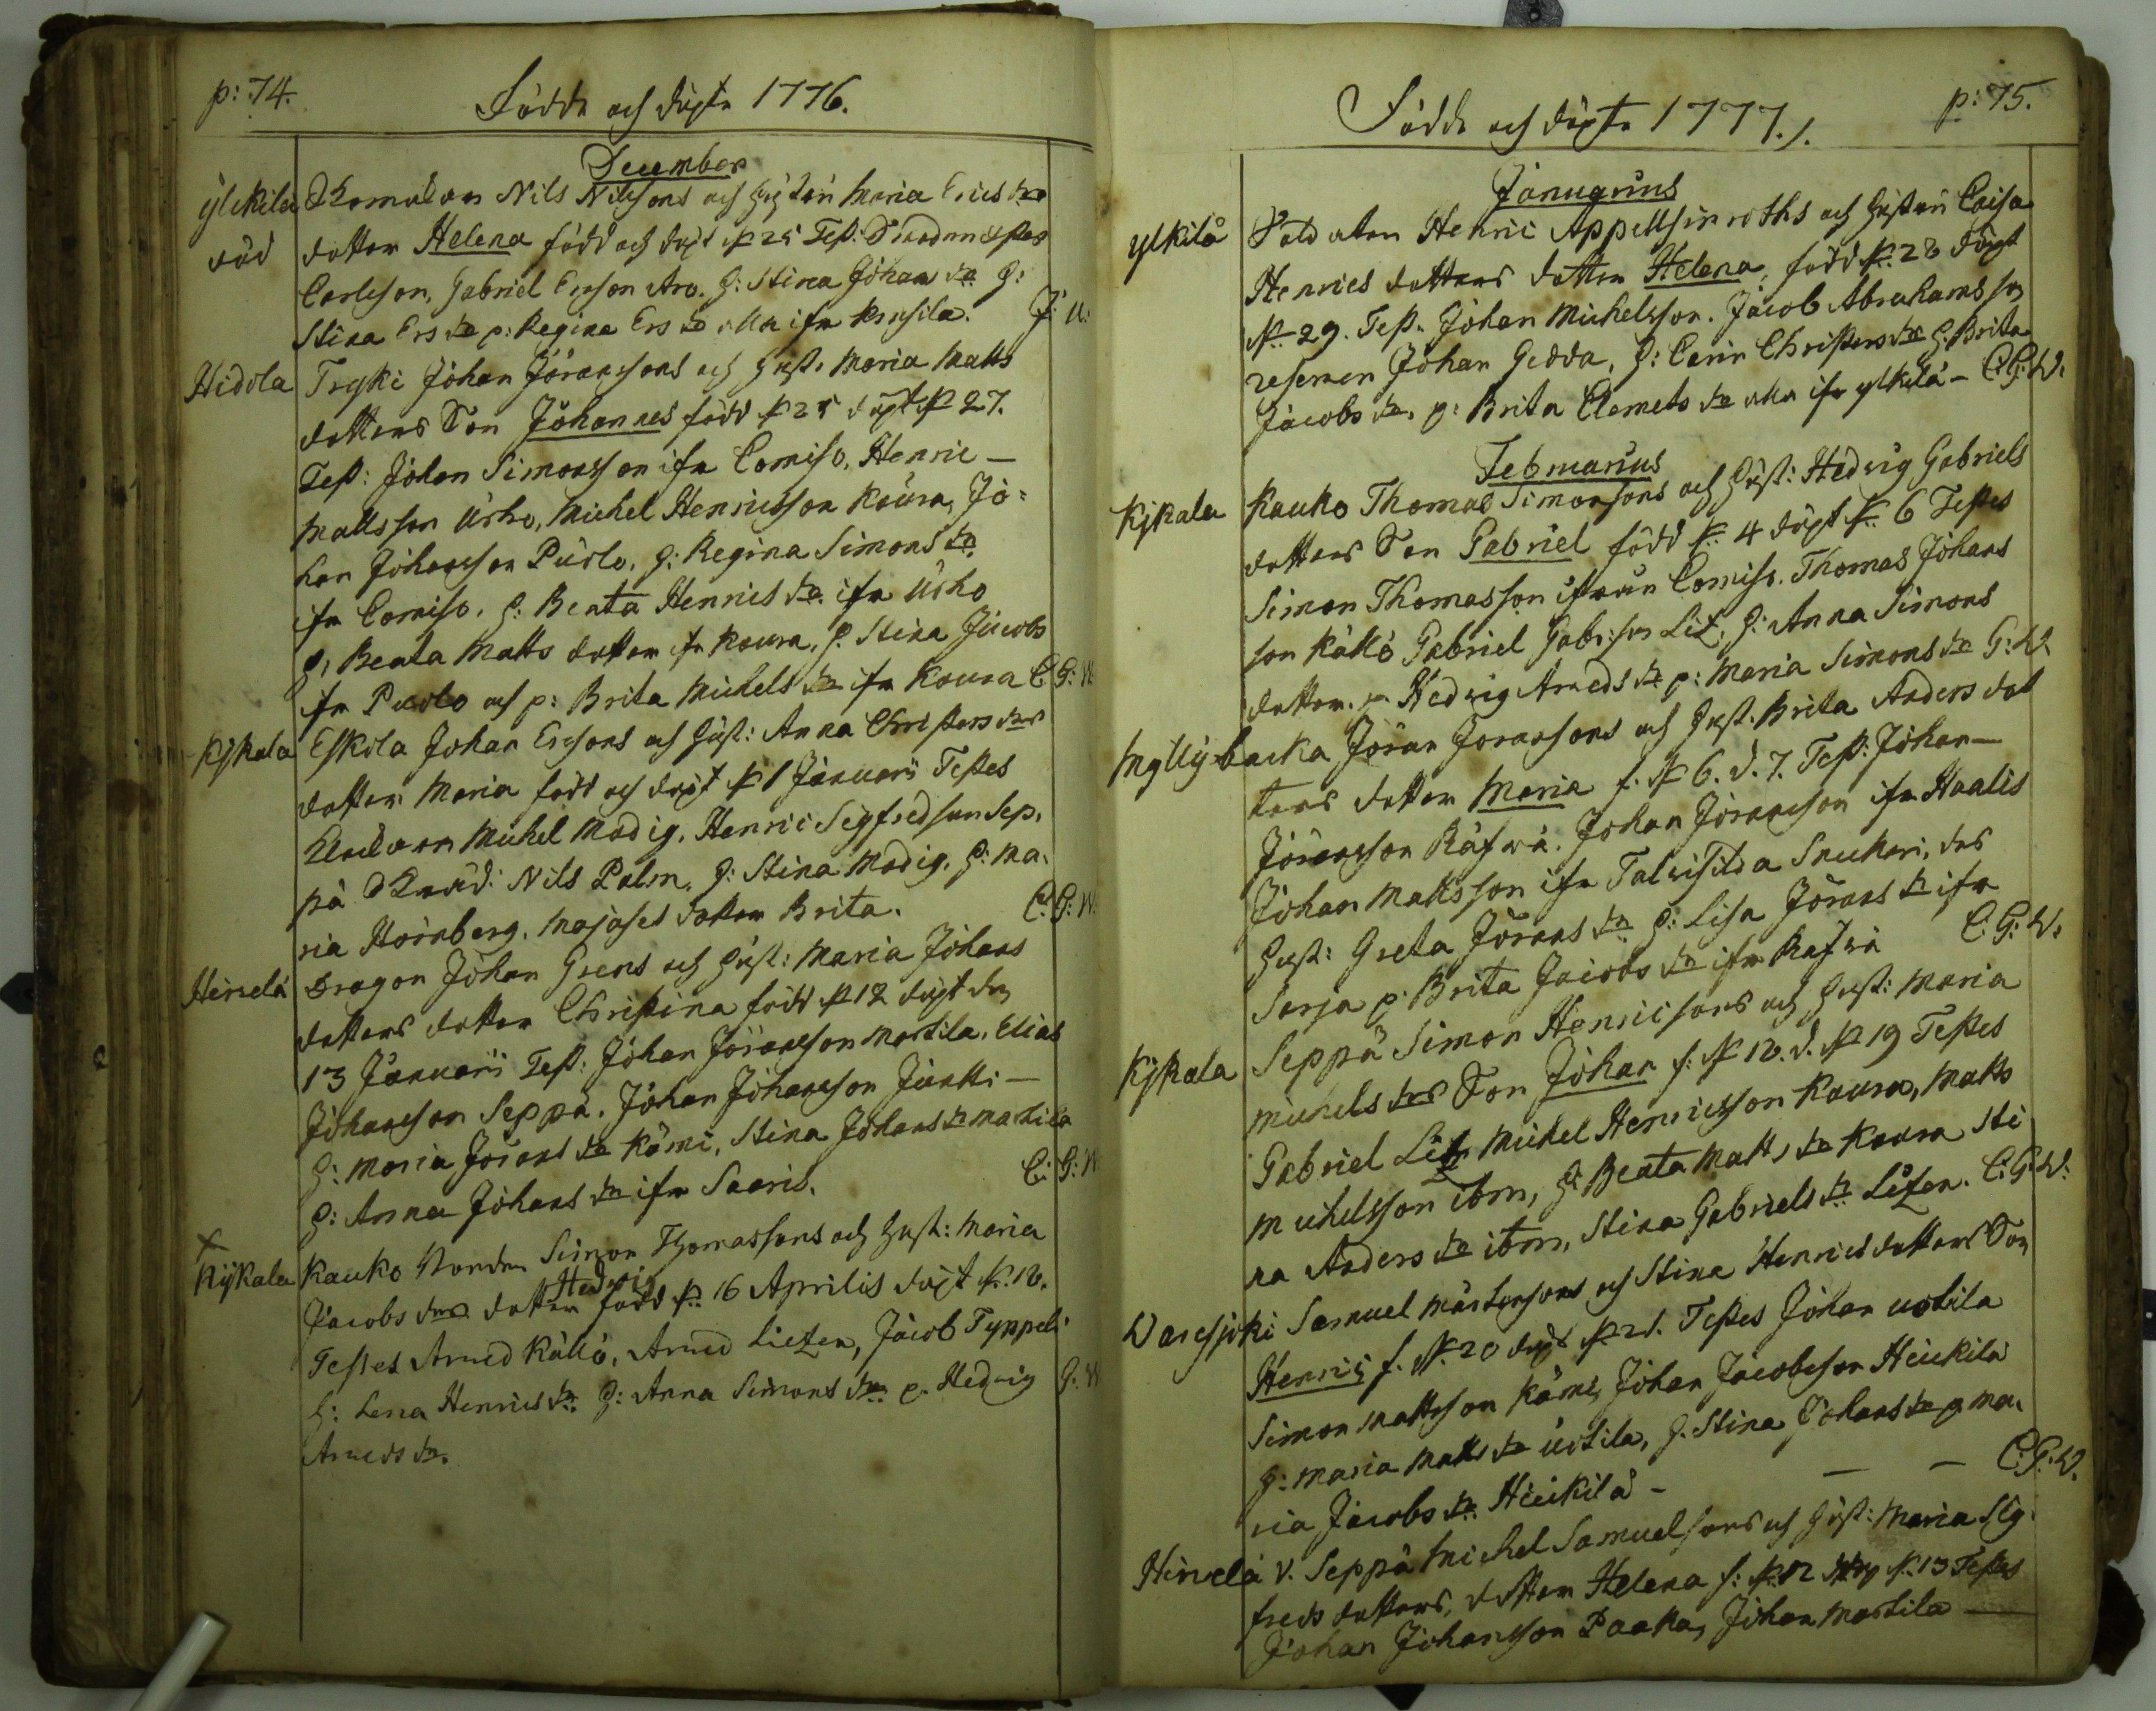 p: 74.
Födde och döpte 1776.
December
ylikilä Nils Nilssons och hustru Maria Erics dr
död dotter Helena född och döpt d. 25 Test:
Carlsson, Gabriel Ersson Aro. h: Stina Johans dr. h:
Stina Ers dr p: Regina Ers dr alla ifr
Hidola Tryki Johan Jöranssons och hust: Maria Matts
dotters Son Johannes född d. 25 döpt d. 27.
Test: Johan Simonsson ifr Comiso, Henric
Mattsson Urho, Michel Henricsson Koura, Jo=
han Johansson Purlo, h: Regina Simons dr.
ifr Comiso, h: Beata Henrics dr. ifr Urho
h: Beata Matts dotter ifr Koura, h. Stina Jacobs
ifr Purlo och p: Brita Michels dr ifr Koura C: G: W:
Kijkala Eskola Johan Ericsons och Hust: Anna Christers drs
dotter Maria född och döpt d. 1 Januarii Testes
Michel Modig, Henric Segfredsson Sep=
pä Nils Palm, h: Stina Modig, h: Ma=
ria Hornberg, dotter Brita. C: G: W:
Hirvelä Dragon Johan Grens och Hust: Maria Johans
dotters dotter Christina född d. 12 döpt den
13 Januarii Test: Johan Jöransson Martila, Elias
Johansson Seppä. Johan Johansson Juntti
h: Maria Jörans dr Kömi, Stina Johans dr Martila
h: Anna Johans dr ifr Saaris. C: G: W
x
Kijkala Kauko Bonden Simon Thomassons och hust: Maria
Jacobs drs dotter Hedvig född d. 16 Aprilis döpt d. 18.
Testes Arued Källö, Arued Litzen, Jacob Typpeli
h: Lena Henrics dr. h: Anna Simons dr. p. Hedvig G: W
Arueds dr.
p: 75.
Födde och döpte 1777.
Januarius
ylkilä Soldaten Henric och hustru Caisa
Henrics dotters dotter Helena, född d. 28 döpt
d. 29. Test. Johan Michelsson. Jacob Abrahamsson
Johan Gedda, h: Carin Christers dr h. Brita
Jacobs dr. p: Brita Clemets dr alla ifr ylkilä - C: G: W.
Februarius
Kijkala Kauko Thomas Simonsons och Hust: Hedvig Gabriels
dotters Son Gabriel född d. 4 döpt d. 6 Testes
Simon Thomasson ifrån Comiso. Thomas Johans
son Källö Gabriel Gabr:son Lit, h: Anna Simons
dotter. p. Hedvig Arueds dr p: Maria Simons dr G: W.
Myllybacka Jöran Joransons och Hust. Brita Anders dot
ters dotter Maria f. d. 6. d. 7. Test: Johan
Jöransson Räfwä. Johan Jöransson ifr Haalis
Johan Mattsson ifr Talvisilda
Hust: Greta Jörans dr h: Lisa Jörans dr ifr
Sorja p: Brita Jacobs dr ifr Rafwä C: G: W:
Kijkala Seppä Simon Henricsons och Hust: Maria
Michels drs Son Johan f: d. 18. d. d. 19 Testes
Gabriel Litz Michel Henricsson Koura, Matts
Michelsson ibm, h: Beata Matts dr Koura Sti
na Anders dr ibm, Stina Gabriels dr Litzen. C: G: W:
Waresjoki Samuel Mårtensons och Stina Henrics dotters Son
Henric f. d. 20 döpt d. 21. Testes Johan Uotila
Simon Mattsson Kömi, Johan Jacobsson Heikilä
h: Maria Matts dr Uotila, h. Stina Johans dr p Ma=
ria Jacobs dr. Heikilä - C: G: W.
Hirvelä v. Seppä Michel Samuelsons och Hust: Maria Sig
freds dotters, dotter Helena f: d. 12 d. 13 Testes
Johan Johansson Paaka, Johan Martila